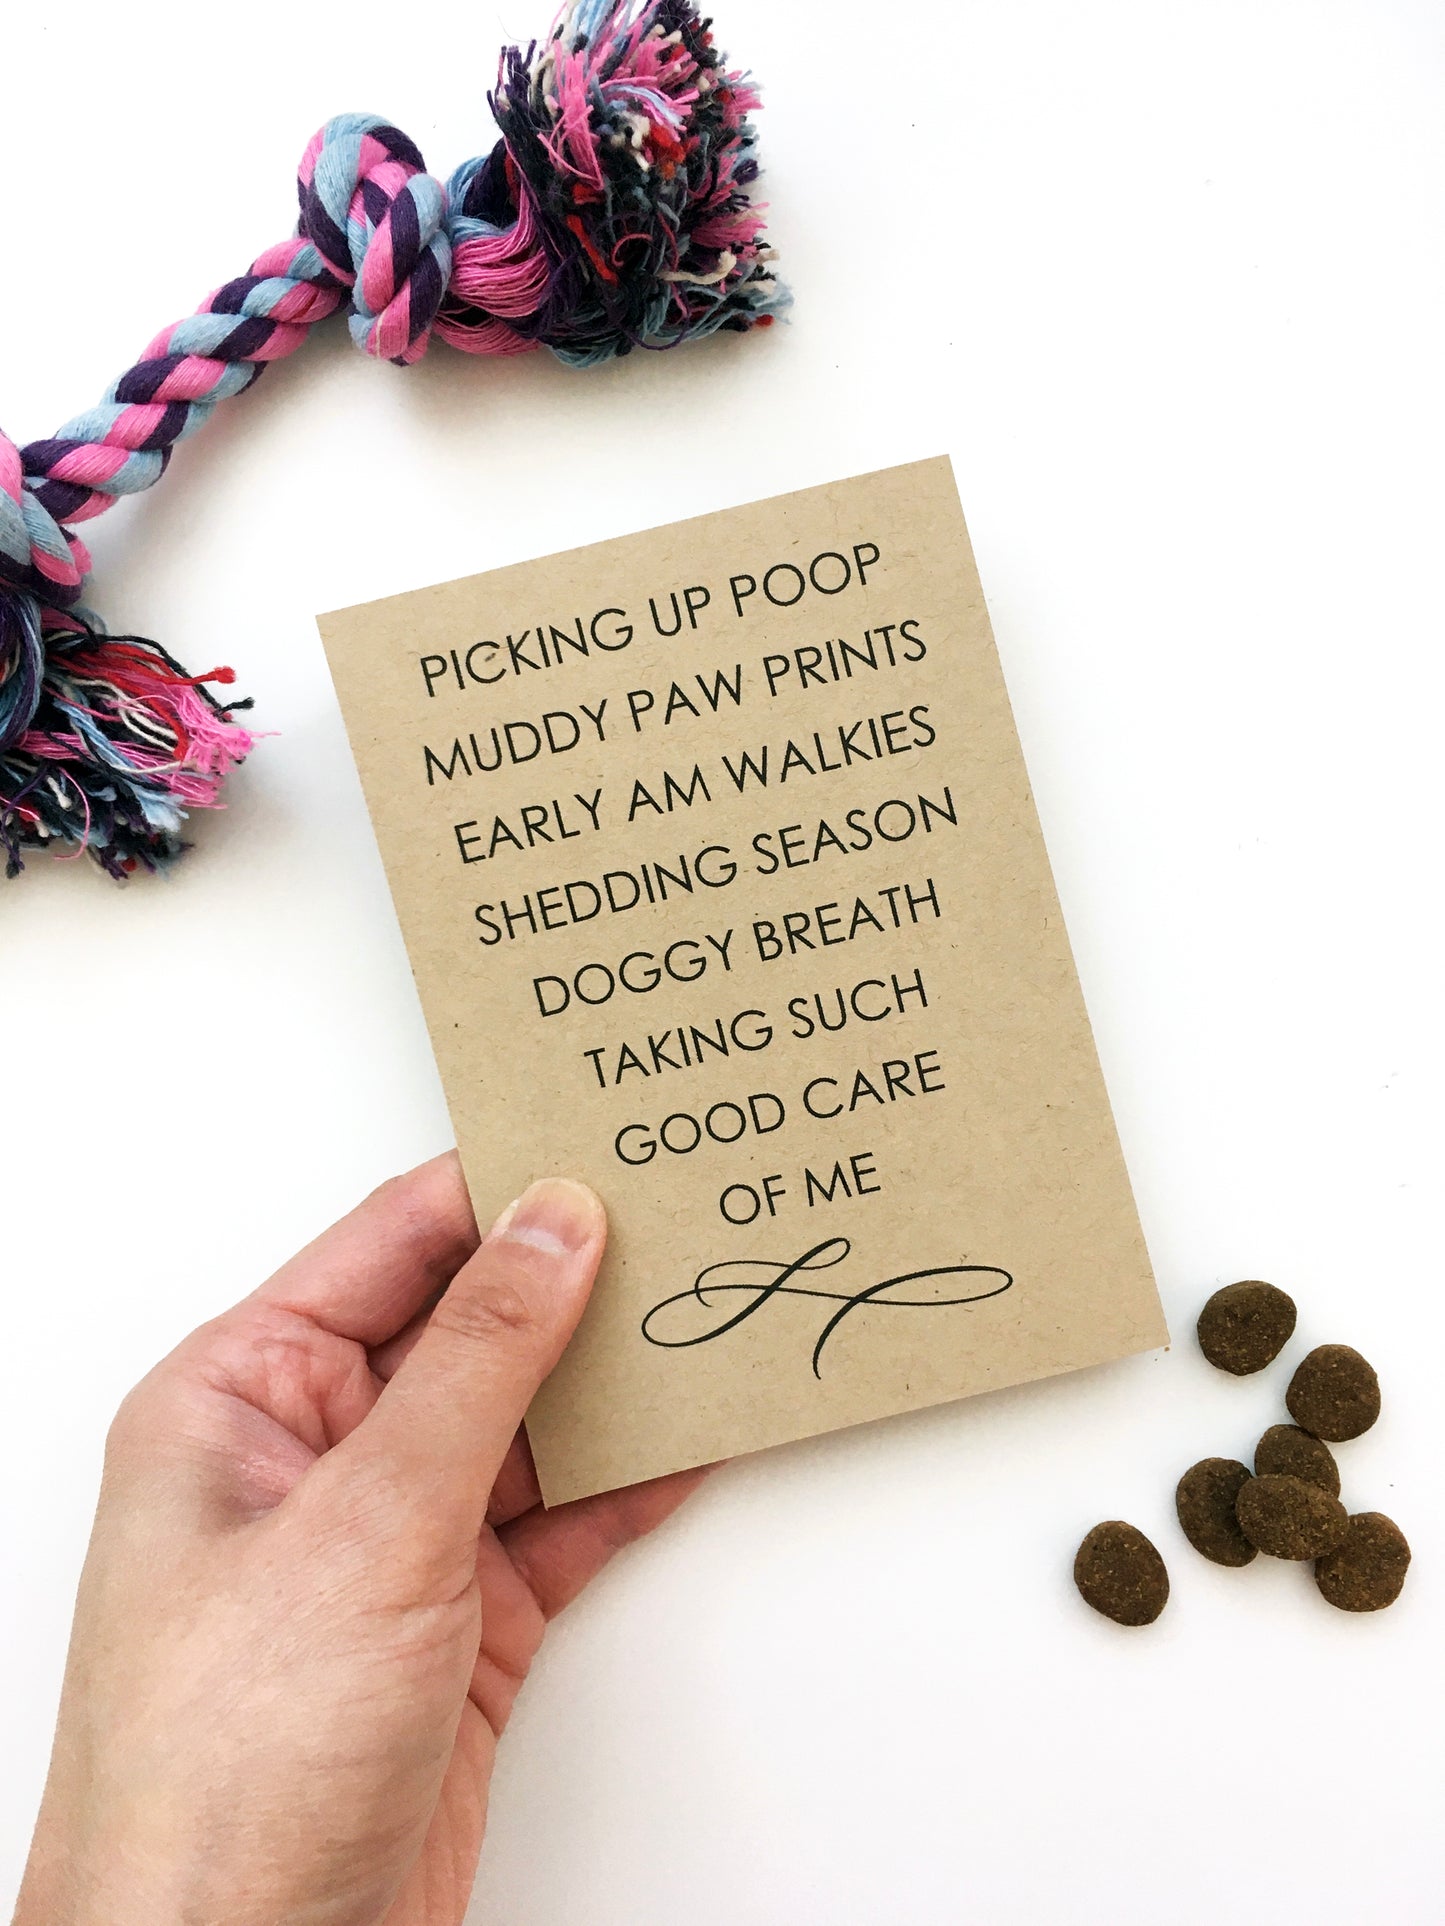 PICKING UP POOP
MUDDY PAW PRINTS
EARLY AM WALKIES
SHEDDING SEASON
DOGGY BREATH
TAKING SUCH
GOOD CARE
OF ME